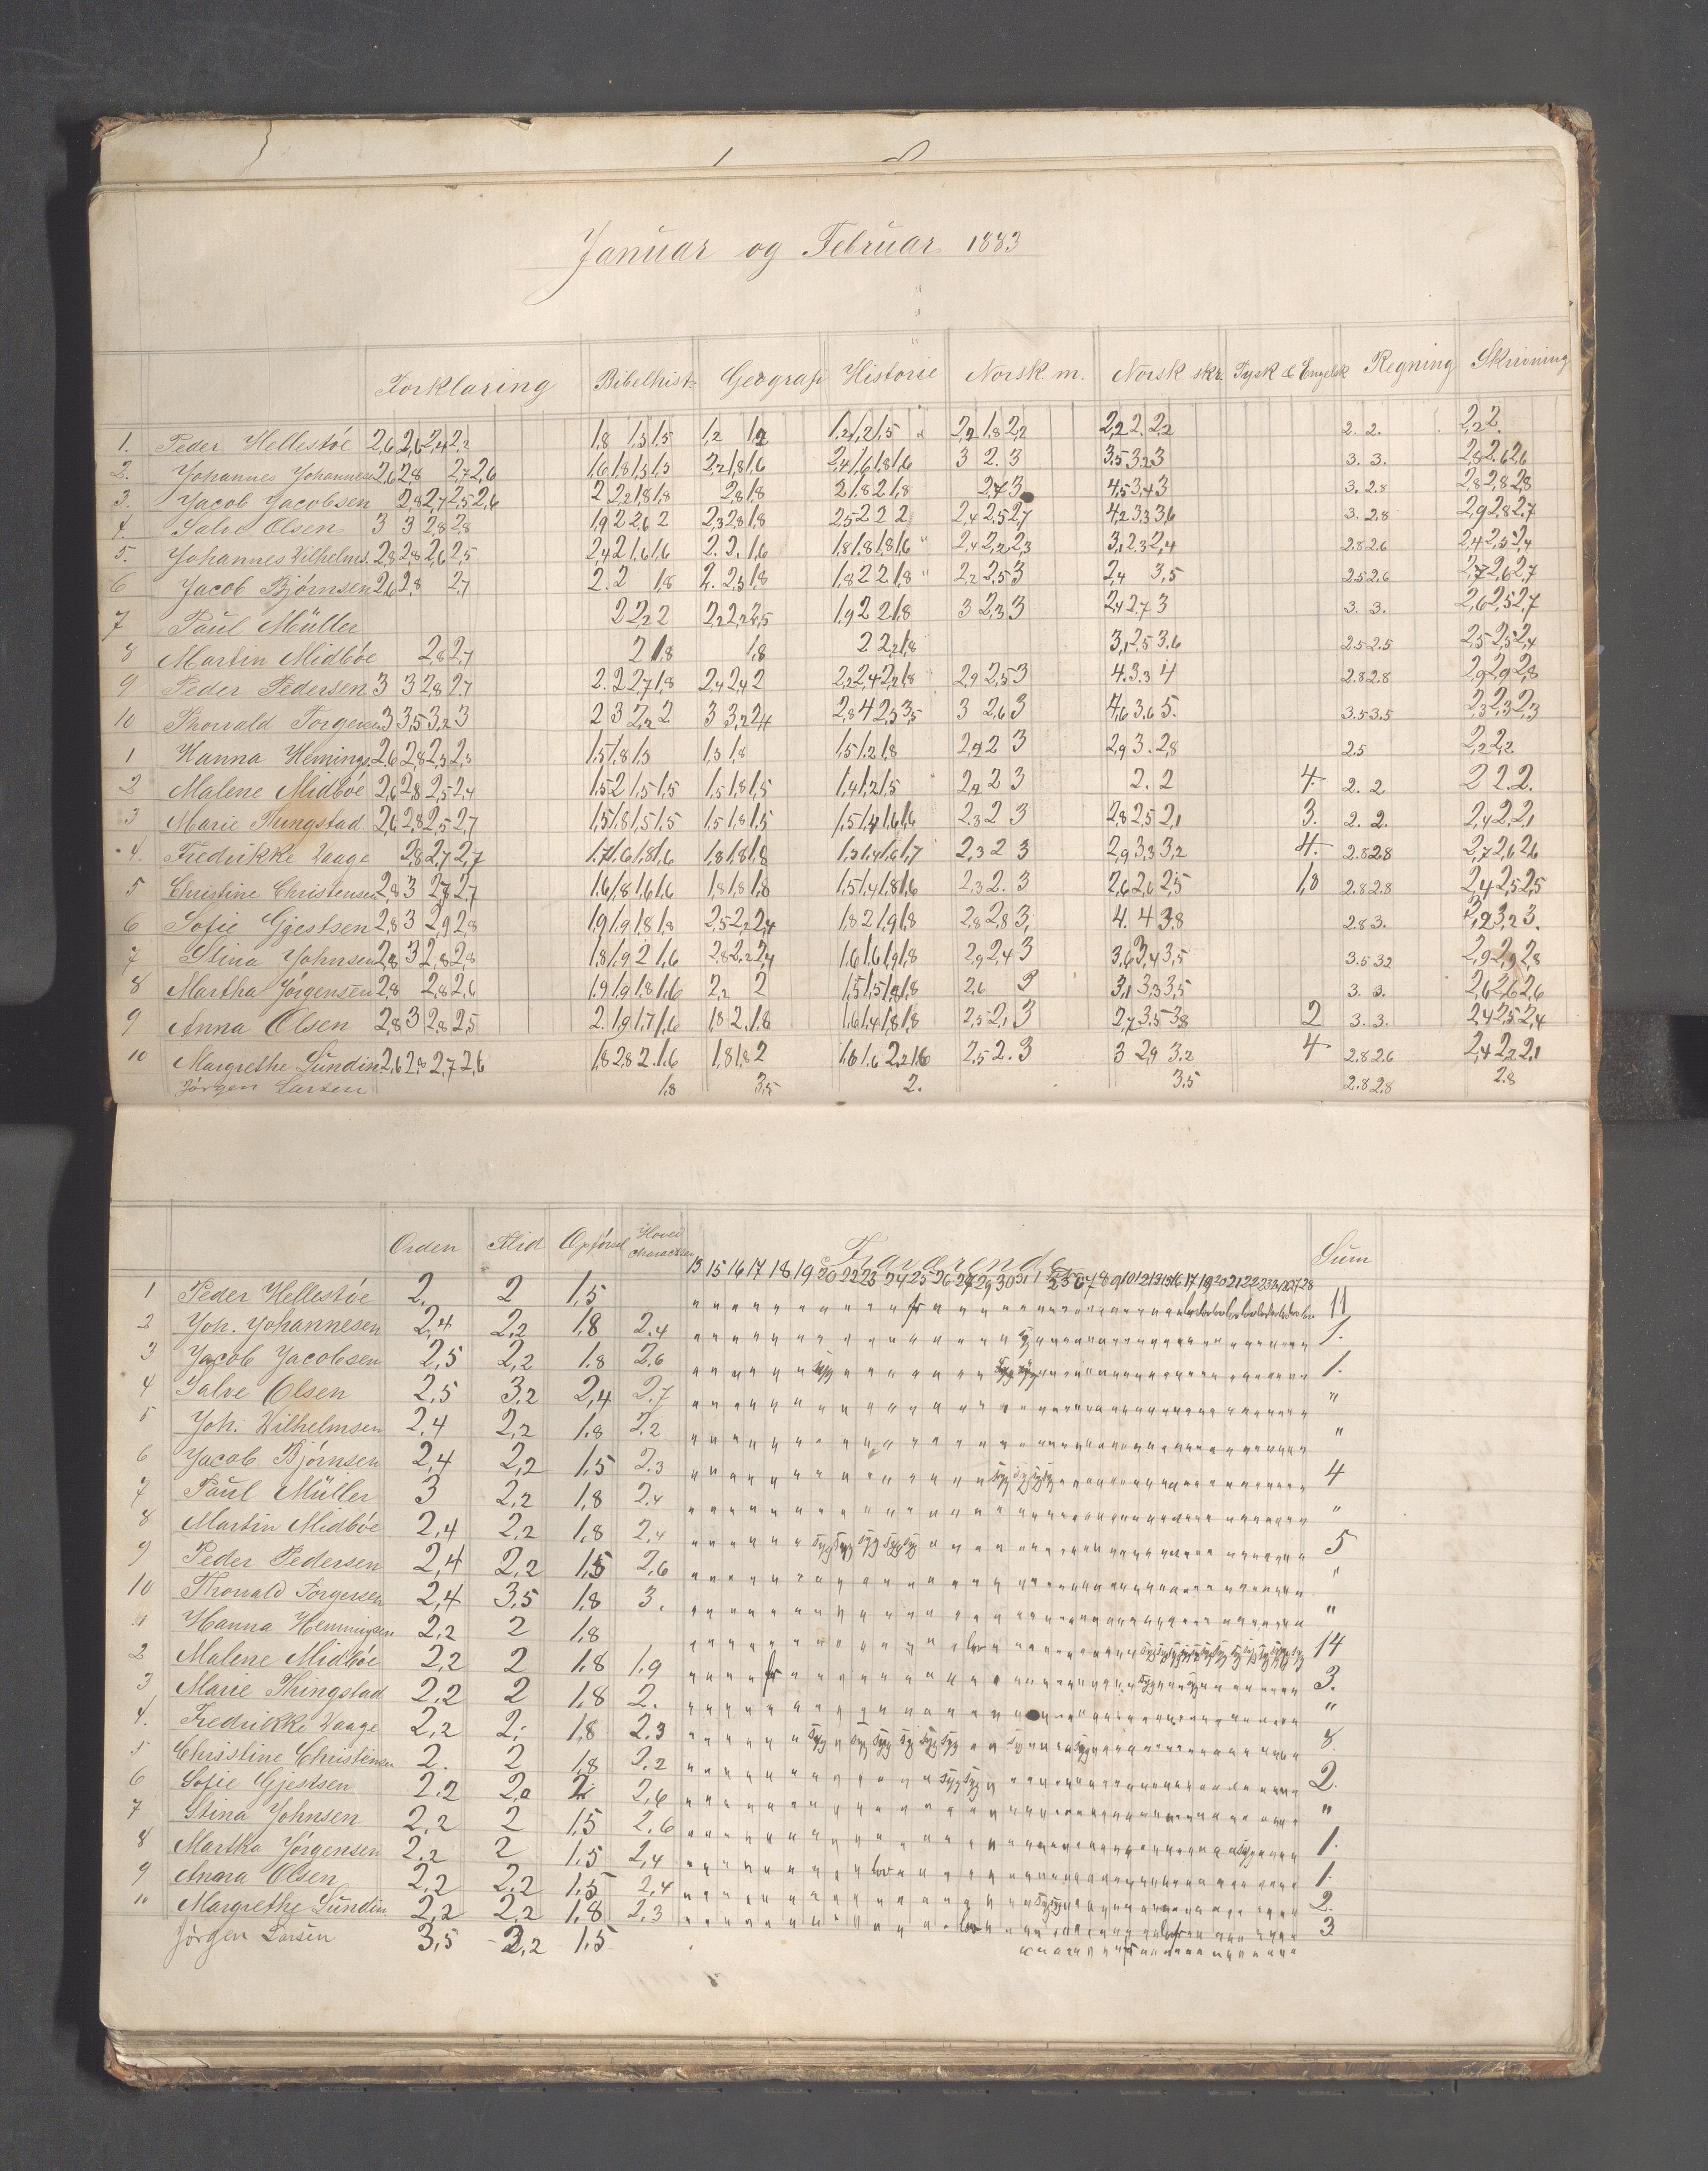 Januar og Februar 1883
Forklaring Bibelhist. Geografi Historie Norsk m. Norsk skr. Tysk & Engelsk Regning Skrivning
1. Peder Hellestøe 2,6 2,6 2,4 2,2 1,8 1,3 1,5 1,2 1,2 1,2 1,2 1,5 2,2 1,8 2,2 2,2 2. 2,2 2. 2. 2,2 2.
2. Johannes Johannesen 2,6 2,8 2,7 2,6 1,6 1,8 1,3 1,5 2,2 1,8 1,6 2,4 1,6 1,8 1,6 3 2. 3 3,5 3,2 3 3. 3. 2,8 2,6 2,6
3. Jacob Jacobsen 2,8 2,7 2,5 2,6 2 2,2 1,8 1,8 2,8 1,8 2 1,8 2 1,8 2,7 3 4,5 3,4 3 3. 2,8 2,8 2,8 2,8
4. Salve Olsen 3 3 2,8 2,8 1,9 2 2,6 2 2,3 2,8 1,8 2,5 2 2 2 2,4 2,5 2,7 4,2 3,3 3,6 3. 2,8 2,9 2,8 2,7
5. Johannes Vilhelms. 2,8 2,8 2,6 2,5 2,4 2 1,6 1,6 2. 2. 1,6 1,8 1,8 1,8 1,6 2,4 2,2 2,3 3,1 2,3 2,4 2.8 2.6 2,4 2,5 2,4
6 Jacob Bjørnsen 2,6 2,8 2,7 2. 2 1,8 2. 2,3 1,8 1,8 2 2 1,8 2,2 2,5 3 2,4 3,5 2.5 2.6 2,7 2,6 2,7
7 Paul Müller 2 2,2 2 2,2 2,2 2,5 1,9 2 2 1,8 3 2,3 3 2,4 2,7 3 3. 3. 2,6 2,5 2,7
8 Martin Midbøe 2,8 2,7 2 1,8 1,8 2 2,2 1,8 3,1 2,5 3,6 2.5 2.5 2,5 2,5 2,4
9 Peder Pedersen 3 3 2,8 2,7 2. 2 2,7 1,8 2,4 2,4 2 2,2 2,4 2,2 1,8 2,9 2,5 3 4. 3,3 4 2.8 2.8 2,9 2,9 2,8
10 Thorvald Torgersen 3 3,5 3,2 3 2 3 2,2 2 3 3,2 2,4 2,8 4 2,3 3,5 3 2,6 3 4,6 3,6 5. 3.5 3.5 2,3 2,3 2,3
1 Hanna Hemings. 2,6 2,8 2,3 2,3 1,5 1,8 1,3 1,3 1,8 1,5 1,2 1,8 2,2 2 3 2,9 3. 2,8 2.5 2,2 2,2
2 Malene Midbøe 2,6 2,8 2,5 2,4 1,5 2 1,5 1,5 1,5 1,8 1,5 1,4 1,2 1,5 2,2 2 3 2. 2 4. 2. 2 2 2. 2.
3 Marie Thingstad 2,6 2,8 2,5 2,7 1,5 1,8 1,5 1,5 1,5 1,8 1,5 1,5 1,4 1,6 1,6 2,3 2 3 2,8 2,5 2,1 3. 2. 2. 2,4 2,2 2,1
4. Fredrikke Vaage 2,8 2,7 2,7 1,7 1,6 1,8 1,6 1,8 1,8 1,8 1,3 1,4 1,6 1,7 2,3 2 3 2,9 3,3 3,2 4. 2.8 2.8 2,7 2,6 2,6
5 Christine Christensen 2,8 3 2,7 2,7 1,6 1,8 1,6 1,6 1,8 1,8 1,8 1,5 1,4 1,8 1,6 2,3 2. 3 2,6 2,6 2,5 1,8 2.8 2.8 2,4 2,5 2,5
6 Sofie Gjestsen 2,8 3 2,9 2,8 1,9 1,9 1,8 1,8 2,5 2,2 2,4 1,8 2 1,9 1,8 2,8 2,8 3, 4. 4 3,8 2.8 3. 3,2 3,2 3.
7 Stina Johnsen 2,8 3 2,8 2,8 1,8 1,9 2 1,6 2,8 2,2 2,4 1,6 1,6 1,9 1,8 2,9 2,4 3 3,6 3,4 3,5 3.5 3.2 2,9 2,9 2,8
8 Martha Jørgensen 2,8 2,8 2,6 1,9 1,9 1,8 1,6 2,2 2 1,5 1,5 1,8 1,8 2,6 3 3,1 3,3 3,5 3. 3. 2,6 2,6 2,6
9 Anna Olsen 2,8 3 2,8 2,5 2. 1,9 1,7 1,6 1,8 2. 1,8 1,6 1,4 1,8 1,8 2,5 2,1 3 2,7 3,5 3,8 2 3. 3. 2,4 2,5 2,4
10 Margrethe Sundin 2,6 2,8 2,7 2,6 1,8 2,8 2. 1,6 1,8 1,8 2 1,6 1,6 2,2 1,6 2,5 2. 3 3 2,9 3,2 4 2.8 2.6 2,4 2,2 2,1
Jørgen Larsen 1,8 3,5 2. 3,5 2.8 2.8 2.8
Orden Flid Opførsel Hoved Charakter Fraværende Sum
13 15 16 17 18 19 20 22 23 24 25 26 27 29 30 31 1 2 3 6 7 8 9 10 12 13 15 16 17 19 20 21 22 23 24 26 27 28
1 Peder Hellestøe 2. 2 1,5 11
2 Joh. Johannesen 2,4 2,2 1,8 2.4 1.
3 Jacob Jacobsen 2,5 2,2 1.8 2.6 1.
4 Salve Olsen 2,5 3,2 2,4 2,7 "
5 Joh. Vilhelmsen 2,4 2,2 1.8 2.2 "
6 Jacob Bjørnsen 2,4 2,2 1,5 2.3 4
7 Paul Müller 3 2,2 1,8 2.4 "
8 Martin Midbøe 2,4 2,2 1,8 2,4 5
9 Peder Pedersen 2,4 2,2 1,5 2,6 "
10 Thorvald Torgersen 2,4 3,5 1,8 3. "
1 Hanna Hemmingsen 2,2 2 1,8 14
2 Malene Midbøe 2,2 2 1,8 1,9 3.
3 Marie Thingstad 2,2 2 1,8 2. "
4. Fredrikke Vaage 2,2 2. 1,8 2,3 8
5 Christine Christensen 2. 2 1,8 2.2 2.
6 Sofie Gjestsen 2,2 2,2 2. 2,6 "
7 Stina Johnsen 2,2 2 1,5 2.6 1.
8 Martha Jørgensen 2,2 2 1,5 2,4 1.
9 Anna Olsen 2,2 2,2 1,5 2.4 2.
10 Margrethe Sundin 2,2 2,2 1,8 2,3 3
Jörgen Larsen 3,5 3,2 1,5